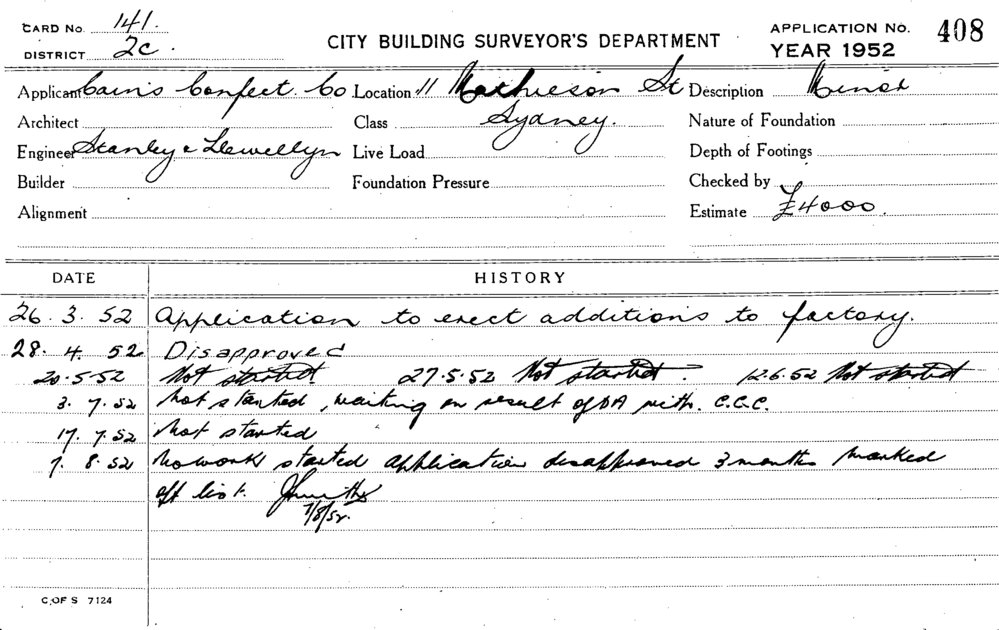 CARD No. 141.
DISTRICT 2c.
CITY BUILDING SURVEYOR'S DEPARTMENT
APPLICATION No. 408
YEAR 1952
Applicant Cain's Confect. Co Location 11 Mathieson St Description Minor
Architect Class Sydney. Nature of Foundation
Engineer Stanley & Llewellyn Live Load Depth of Footings
Builder Foundation Pressure Checked by
Alignment Estimate £4000.
DATE HISTORY
26. 3. 52 Application to erect additions to factory.
28. 4. 52 Disapproved
20.5.52 Not started. 27.5.52 Not started. 12.6.52 Not started
3. 7. 52 Not started, waiting on result of DA with. C.C.C.
17. 7. 52 Not started
7. 8. 52 No work started application disapproved 3 months marked
off list.
7/8/52.
C OF S 7124